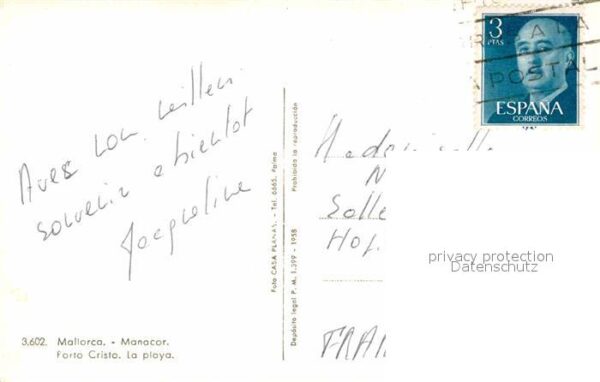 Avec mon meilleur
souvenir a bientot
Jacqueline
3.602. Mallorca. - Manacor.
Porto Cristo. La playa.
Foto CASA PLANAS. - Tel. 6665. Palma
Depósito legal P. M. 1.399 - 1958
Prohibida la reproducción
3
PTAS
ESPAÑA
CORREOS
POSTAL
Mademoiselle
N
FRAN
privacy protection
Datenschutz